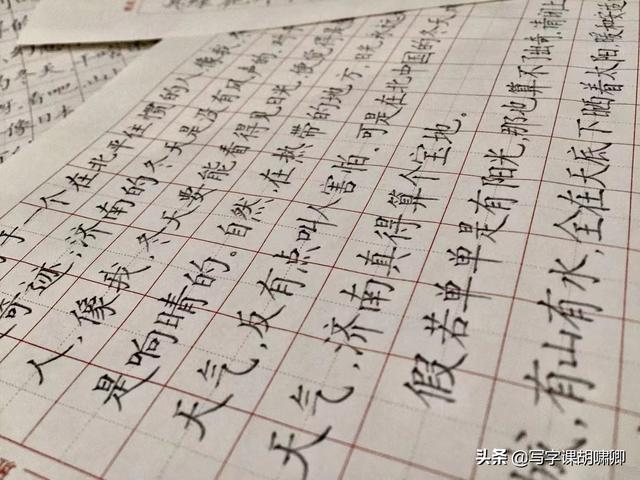 于一个在北平住惯的人,像我,
奇迹;济南的冬天是没有风声的。对于
人,像我,冬天要能看得见日光,便觉得是
是响晴的。自然,在热带的地方,日光永远
天气,反有点叫人害怕.可是在北中国的冬天
天气,济南真得算个宝地。
假若单单是有阳光,那也算不了出奇,请闭上
城,有山有水,全在天底下晒着太阳,暖和安适
头条 @写字课胡啸卿